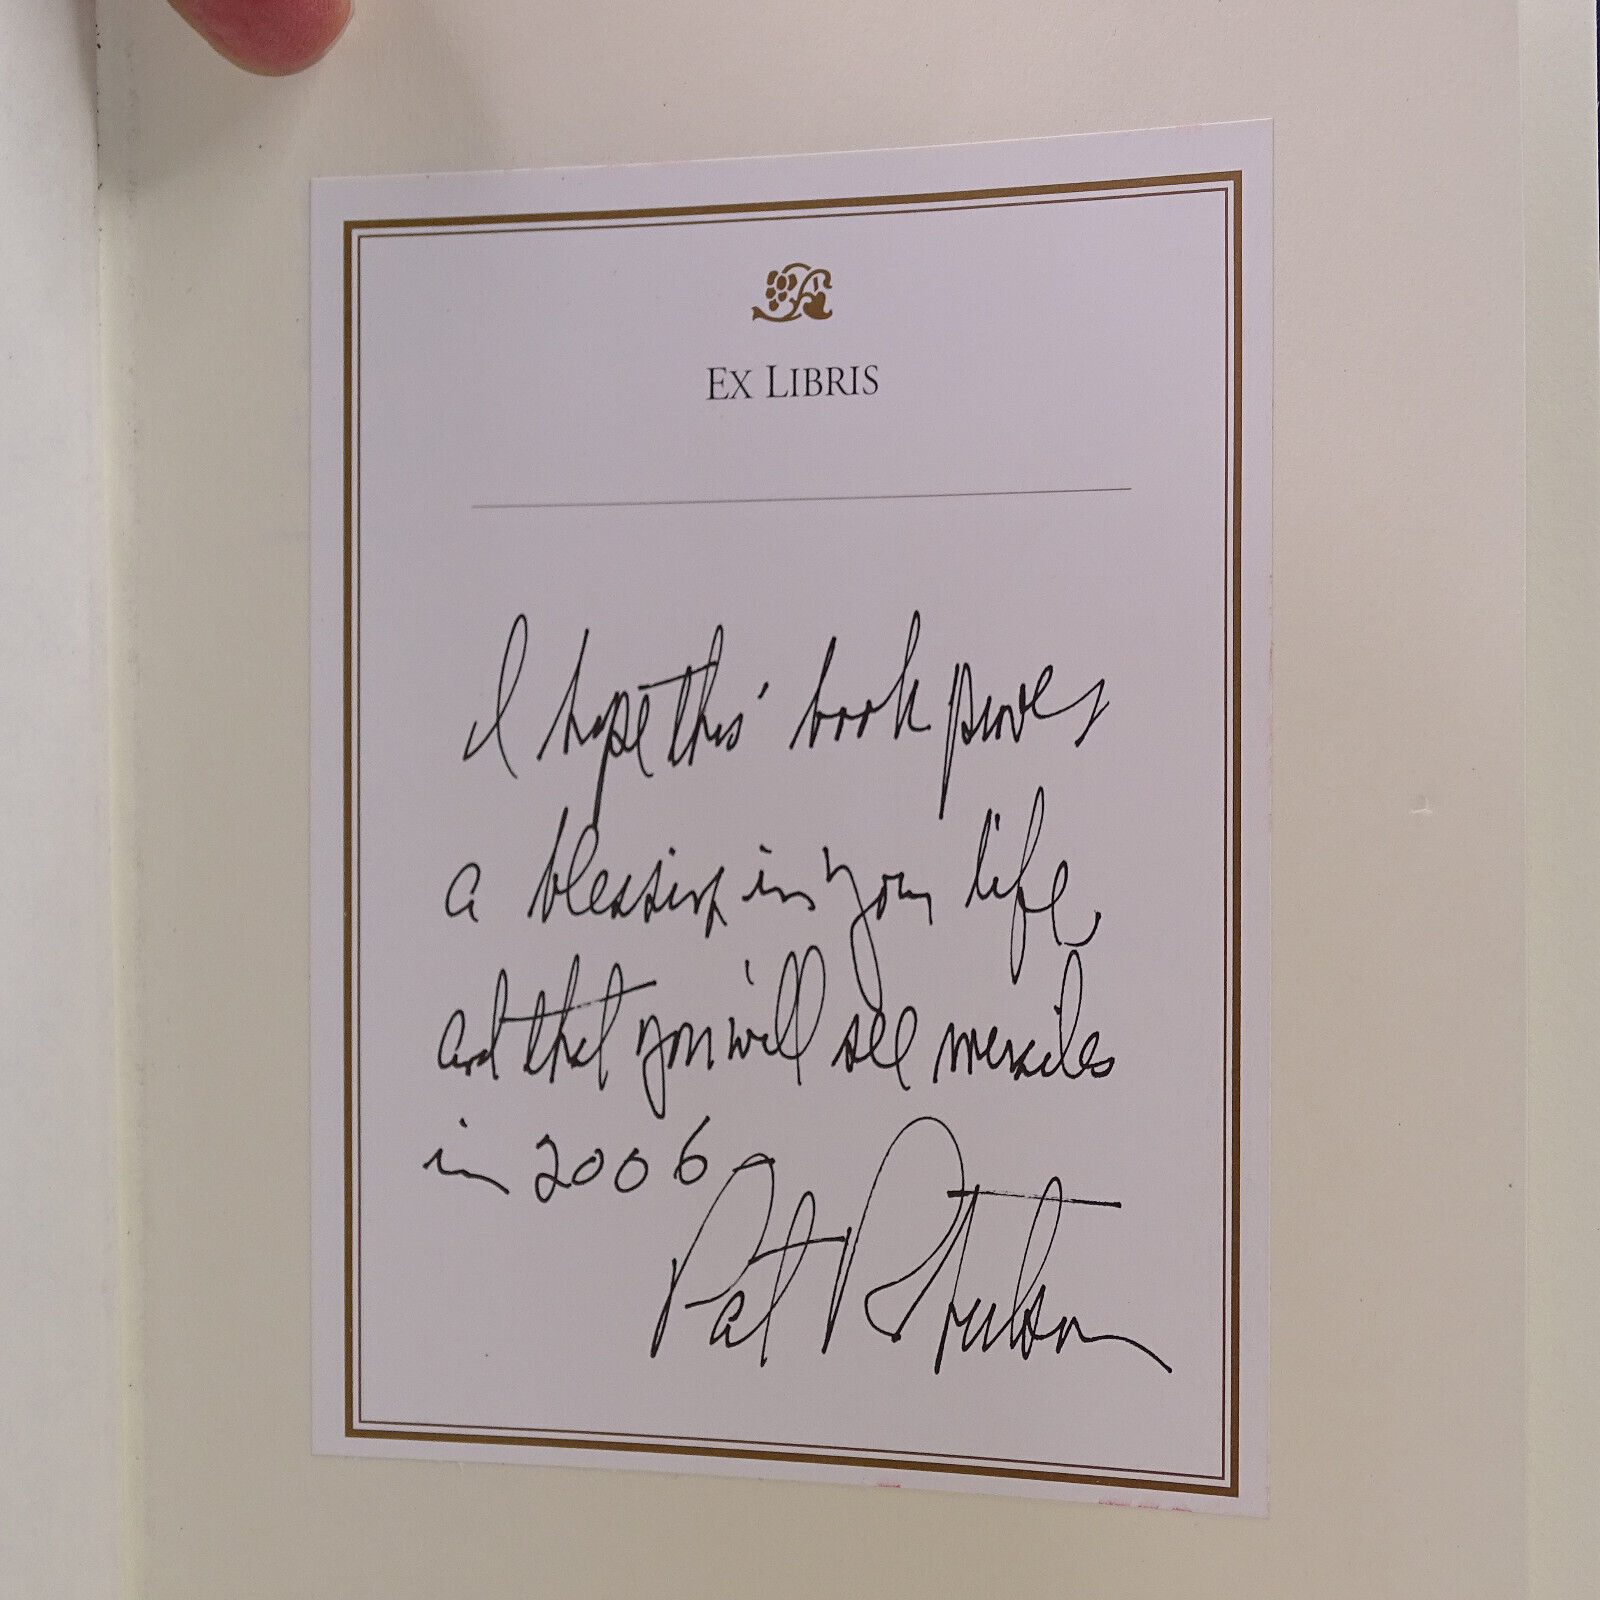 EX LIBRIS
I hope this book proves
a blessing in your life,
and that you will see miracles
in 2006
Pat Robertson